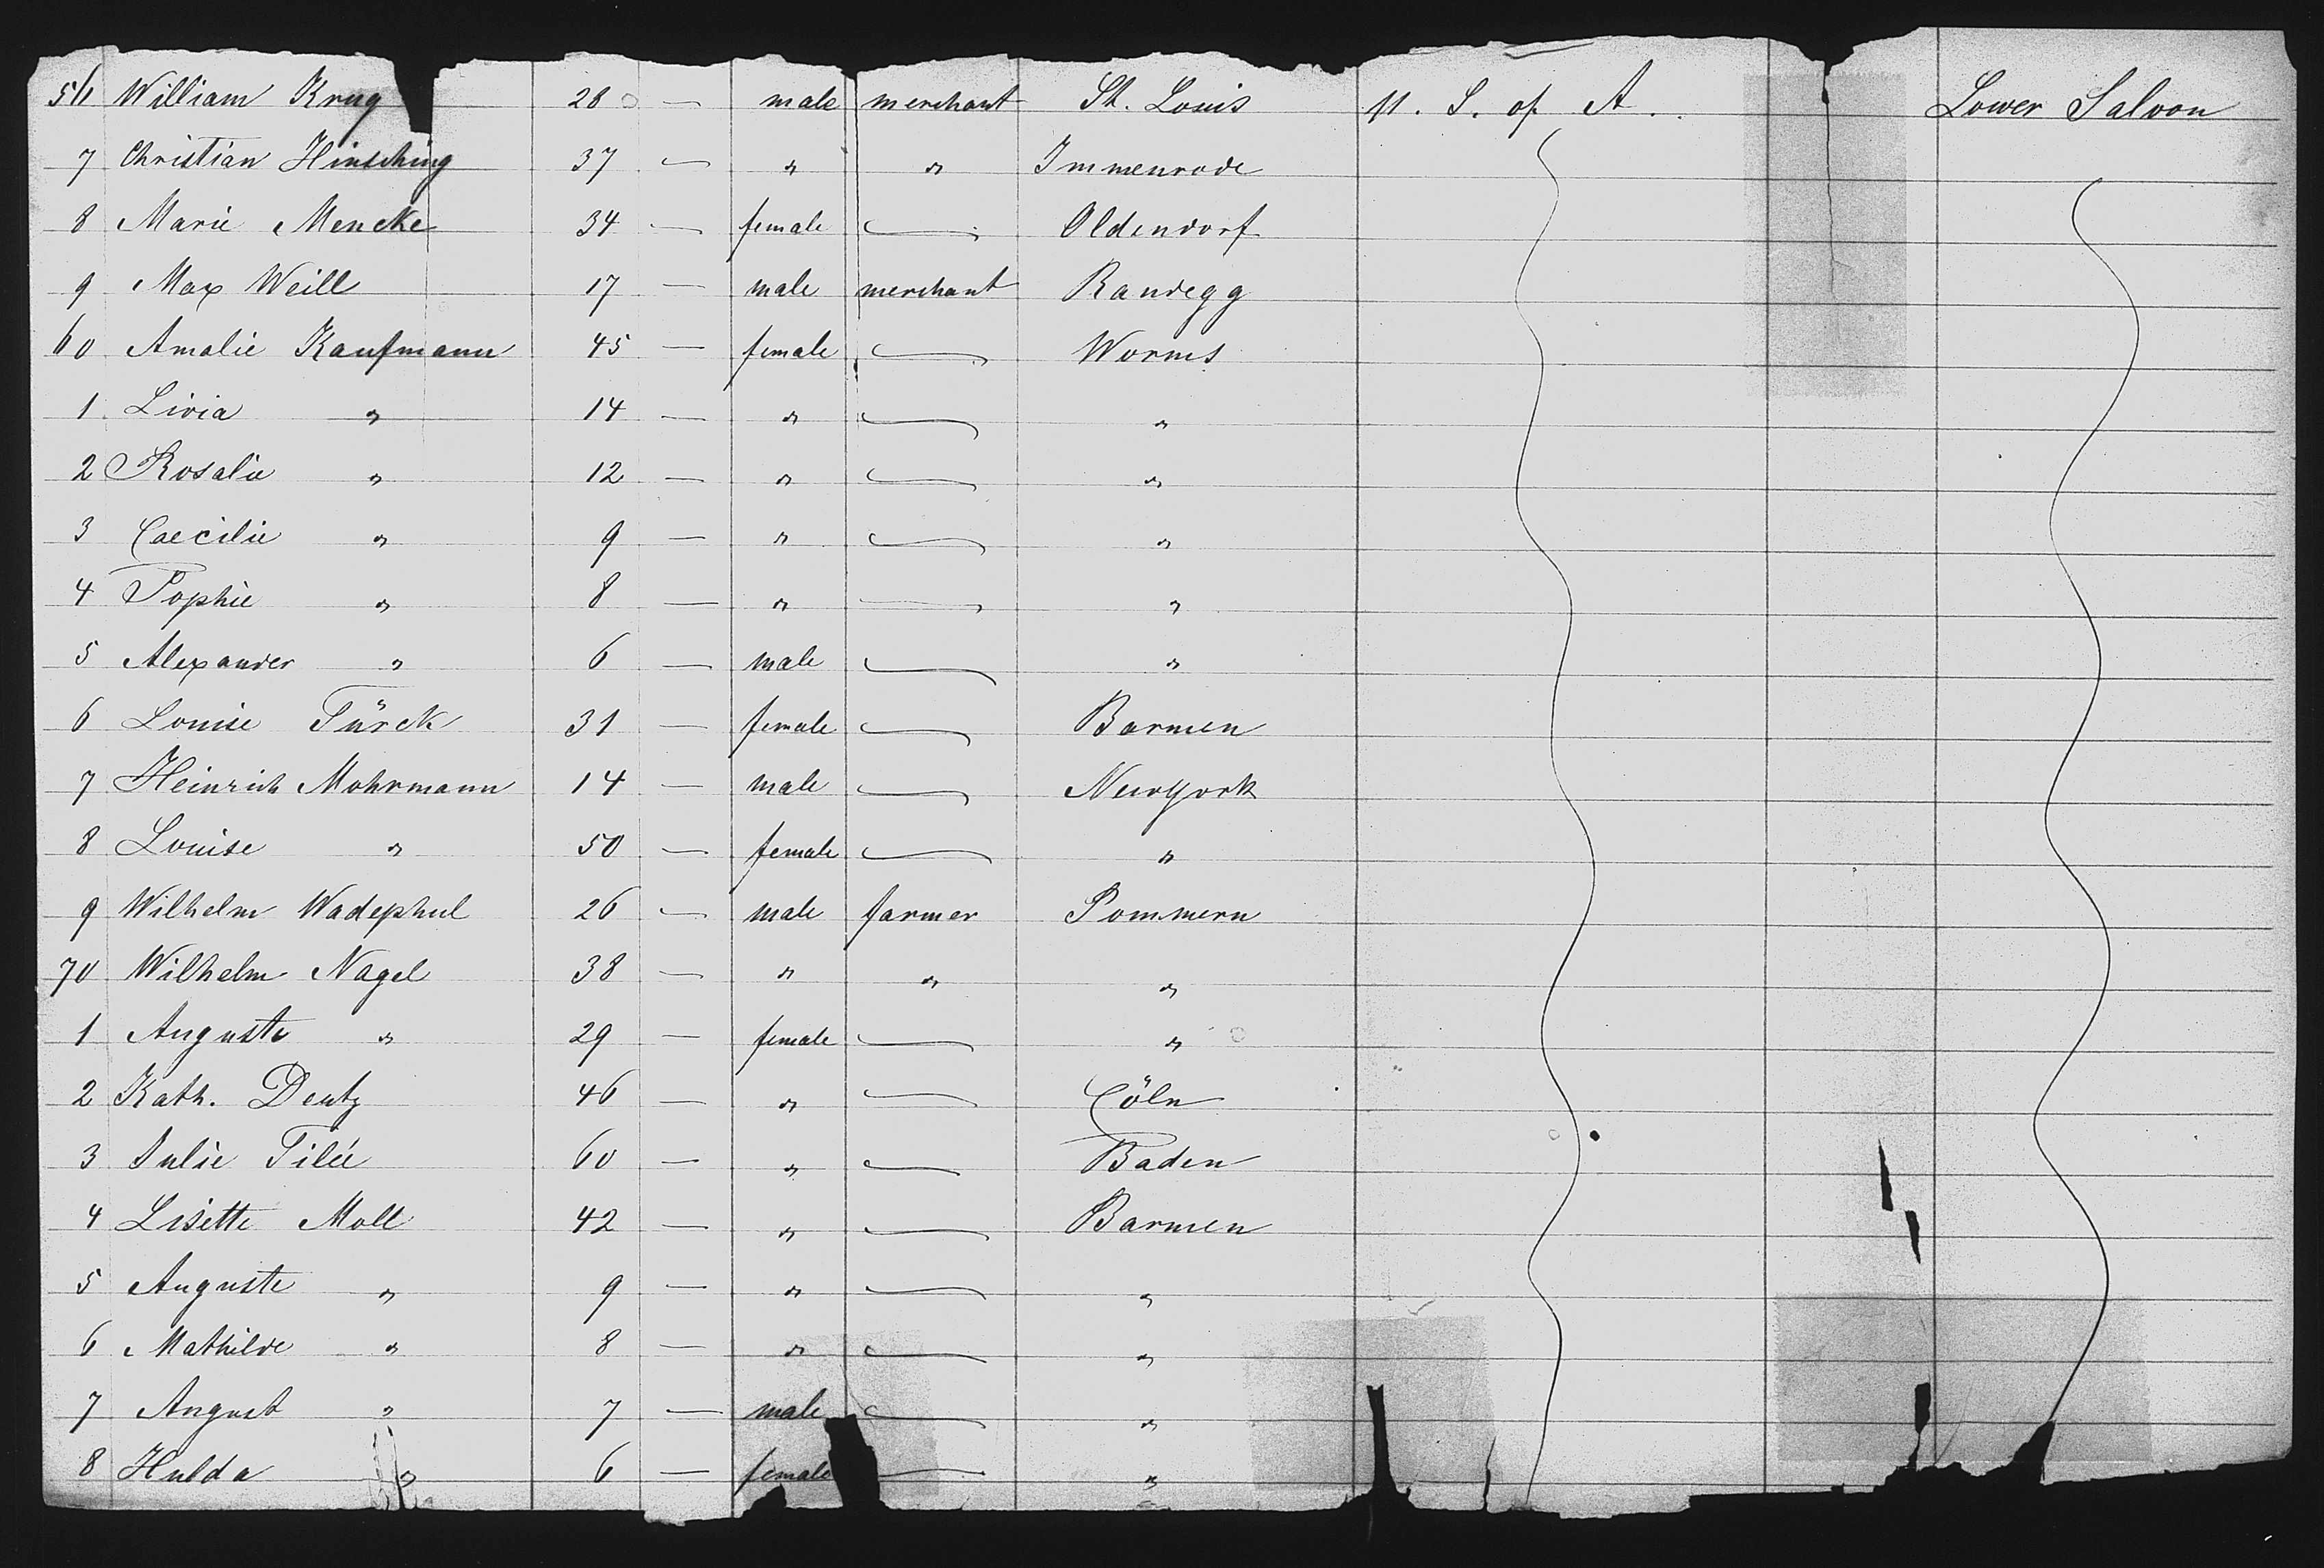 56 William Krug 28 — male merchant St. Louis U. S. of A. Lower Saloon
7 Christian Hinsching 37 — " " Immenrode
8 Marie Mencke 34 — female — Oldendorf
9 Max Weill 17 — male merchant Randegg
60 Amalie Kaufmann 45 — female — Worms
1 Livia " 14 — " — "
2 Rosalie " 12 — " — "
3 Caecilie " 9 — " — "
4 Sophie " 8 — " — "
5 Alexander " 6 — male — "
6 Louise Türck 31 — female — Barmen
7 Heinrich Mohrmann 14 — male — Newyork
8 Louise " 50 — female — "
9 Wilhelm Wadephul 26 — male farmer Pommern
70 Wilhelm Nagel 38 — " " "
1 Auguste " 29 — female — "
2 Kath. Deutz 46 — " — Cöln
3 Julie Tilée 60 — " — Baden
4 Lisette Moll 42 — " — Barmen
5 Auguste " 9 — " — "
6 Mathilde " 8 — " — "
7 August " 7 — male — "
8 Hulda " 6 — female — "